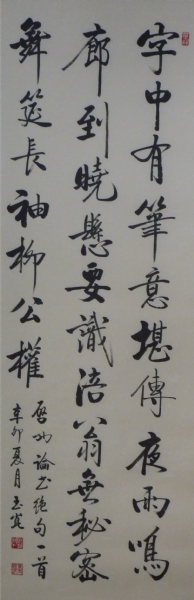 字中有筆意堪傳夜雨鳴
廊到曉懸要識涪翁無秘密
舞筵長袖柳公權
啟功論書絕句一首
辛卯夏月玉寬